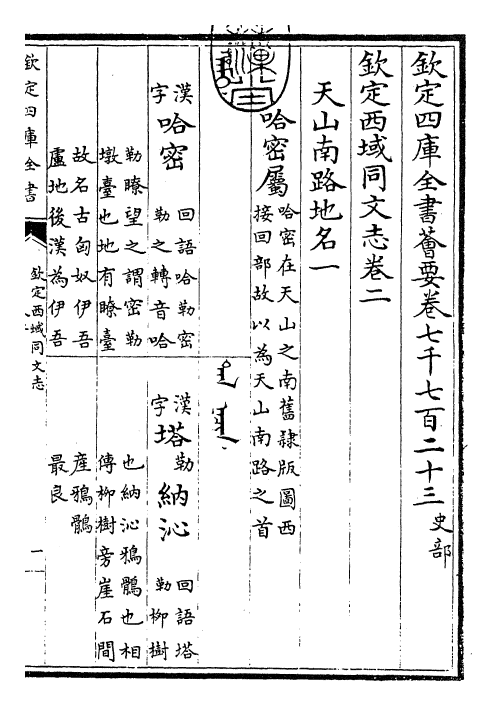 欽定四庫全書薈要卷七千七百二十三史部
欽定西域同文志卷二
天山南路地名一
哈密屬
哈密在天山之南舊隸版圖西
接回部故以為天山南路之首
漢字
哈密
回語哈勒密
勒之轉音哈
勒瞭望之謂密勒
墩臺也地有瞭臺
故名古匈奴伊吾
盧地後漢為伊吾
漢字
塔勒納沁
回語塔
勒柳樹
也納沁鴉鶻也相
傳柳樹旁崖石間
產鴉鶻
最良
欽定四庫全書
欽定西域同文志
一